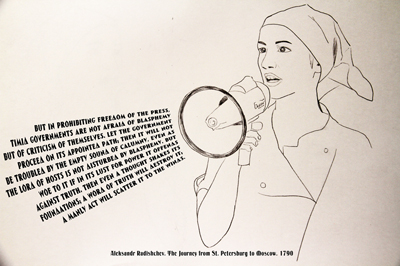 BUT IN PROHIBITING FREEDOM OF THE PRESS,
TIMID GOVERNMENTS ARE NOT AFRAID OF BLASPHEMY
BUT OF CRITICISM OF THEMSELVES. LET THE GOVERNMENT
PROCEED ON ITS APPOINTED PATH; THEN IT WILL NOT
BE TROUBLED BY THE EMPTY SOUND OF CALUMNY, EVEN AS
THE LORD OF HOSTS IS NOT DISTURBED BY BLASPHEMY. BUT
WOE TO IT IF IN ITS LUST FOR POWER IT OFFENDS
AGAINST TRUTH. THEN EVEN A THOUGHT SHAKES ITS
FOUNDATIONS; A WORD OF TRUTH WILL DESTROY IT;
A MANLY ACT WILL SCATTER IT TO THE WINDS.
Aleksandr Radishchev, The Journey from St. Petersburg to Moscow, 1790